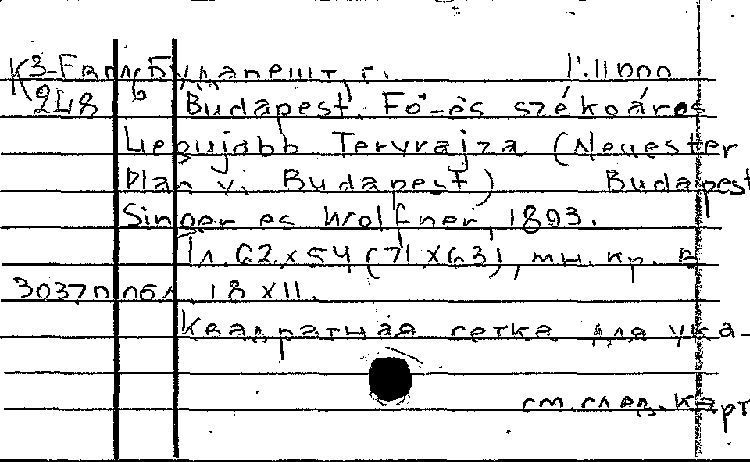 К3-Евп, Будапешт, г. 1:11000
248 6 Budapest. Fő-és székoáros
Legujabb Tervrajza (Neuester
Plan v. Budapest) Budapest
Singer es Wolfner, 1893.
1л. 62 x 54 (71 x 63), мн. кр. в
3037п обл. 18 x 11.
Квадратная сетка для ука-
см. след. карт